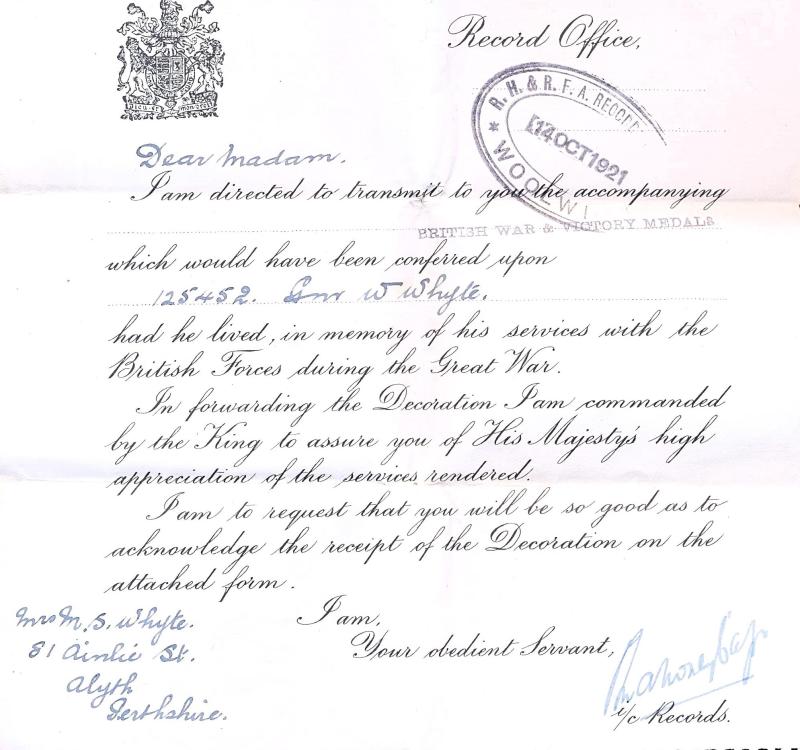 Record Office,
R. H. & R. F. A. RECOR
14 OCT 1921
WOOLWI
DIEU ET MON DROIT
Dear Madam.
I am directed to transmit to you the accompanying
BRITISH WAR & VICTORY MEDALS
which would have been conferred upon
125452. Gnr W Whyte.
had he lived, in memory of his services with the
British Forces during the Great War.
In forwarding the Decoration I am commanded
by the King to assure you of His Majesty's high
appreciation of the services rendered.
I am to request that you will be so good as to
acknowledge the receipt of the Decoration on the
attached form.
I am,
Your obedient Servant,
i/c Records.
Mrs M. S. Whyte.
81 Ainlie St.
Alyth
Perthshire.